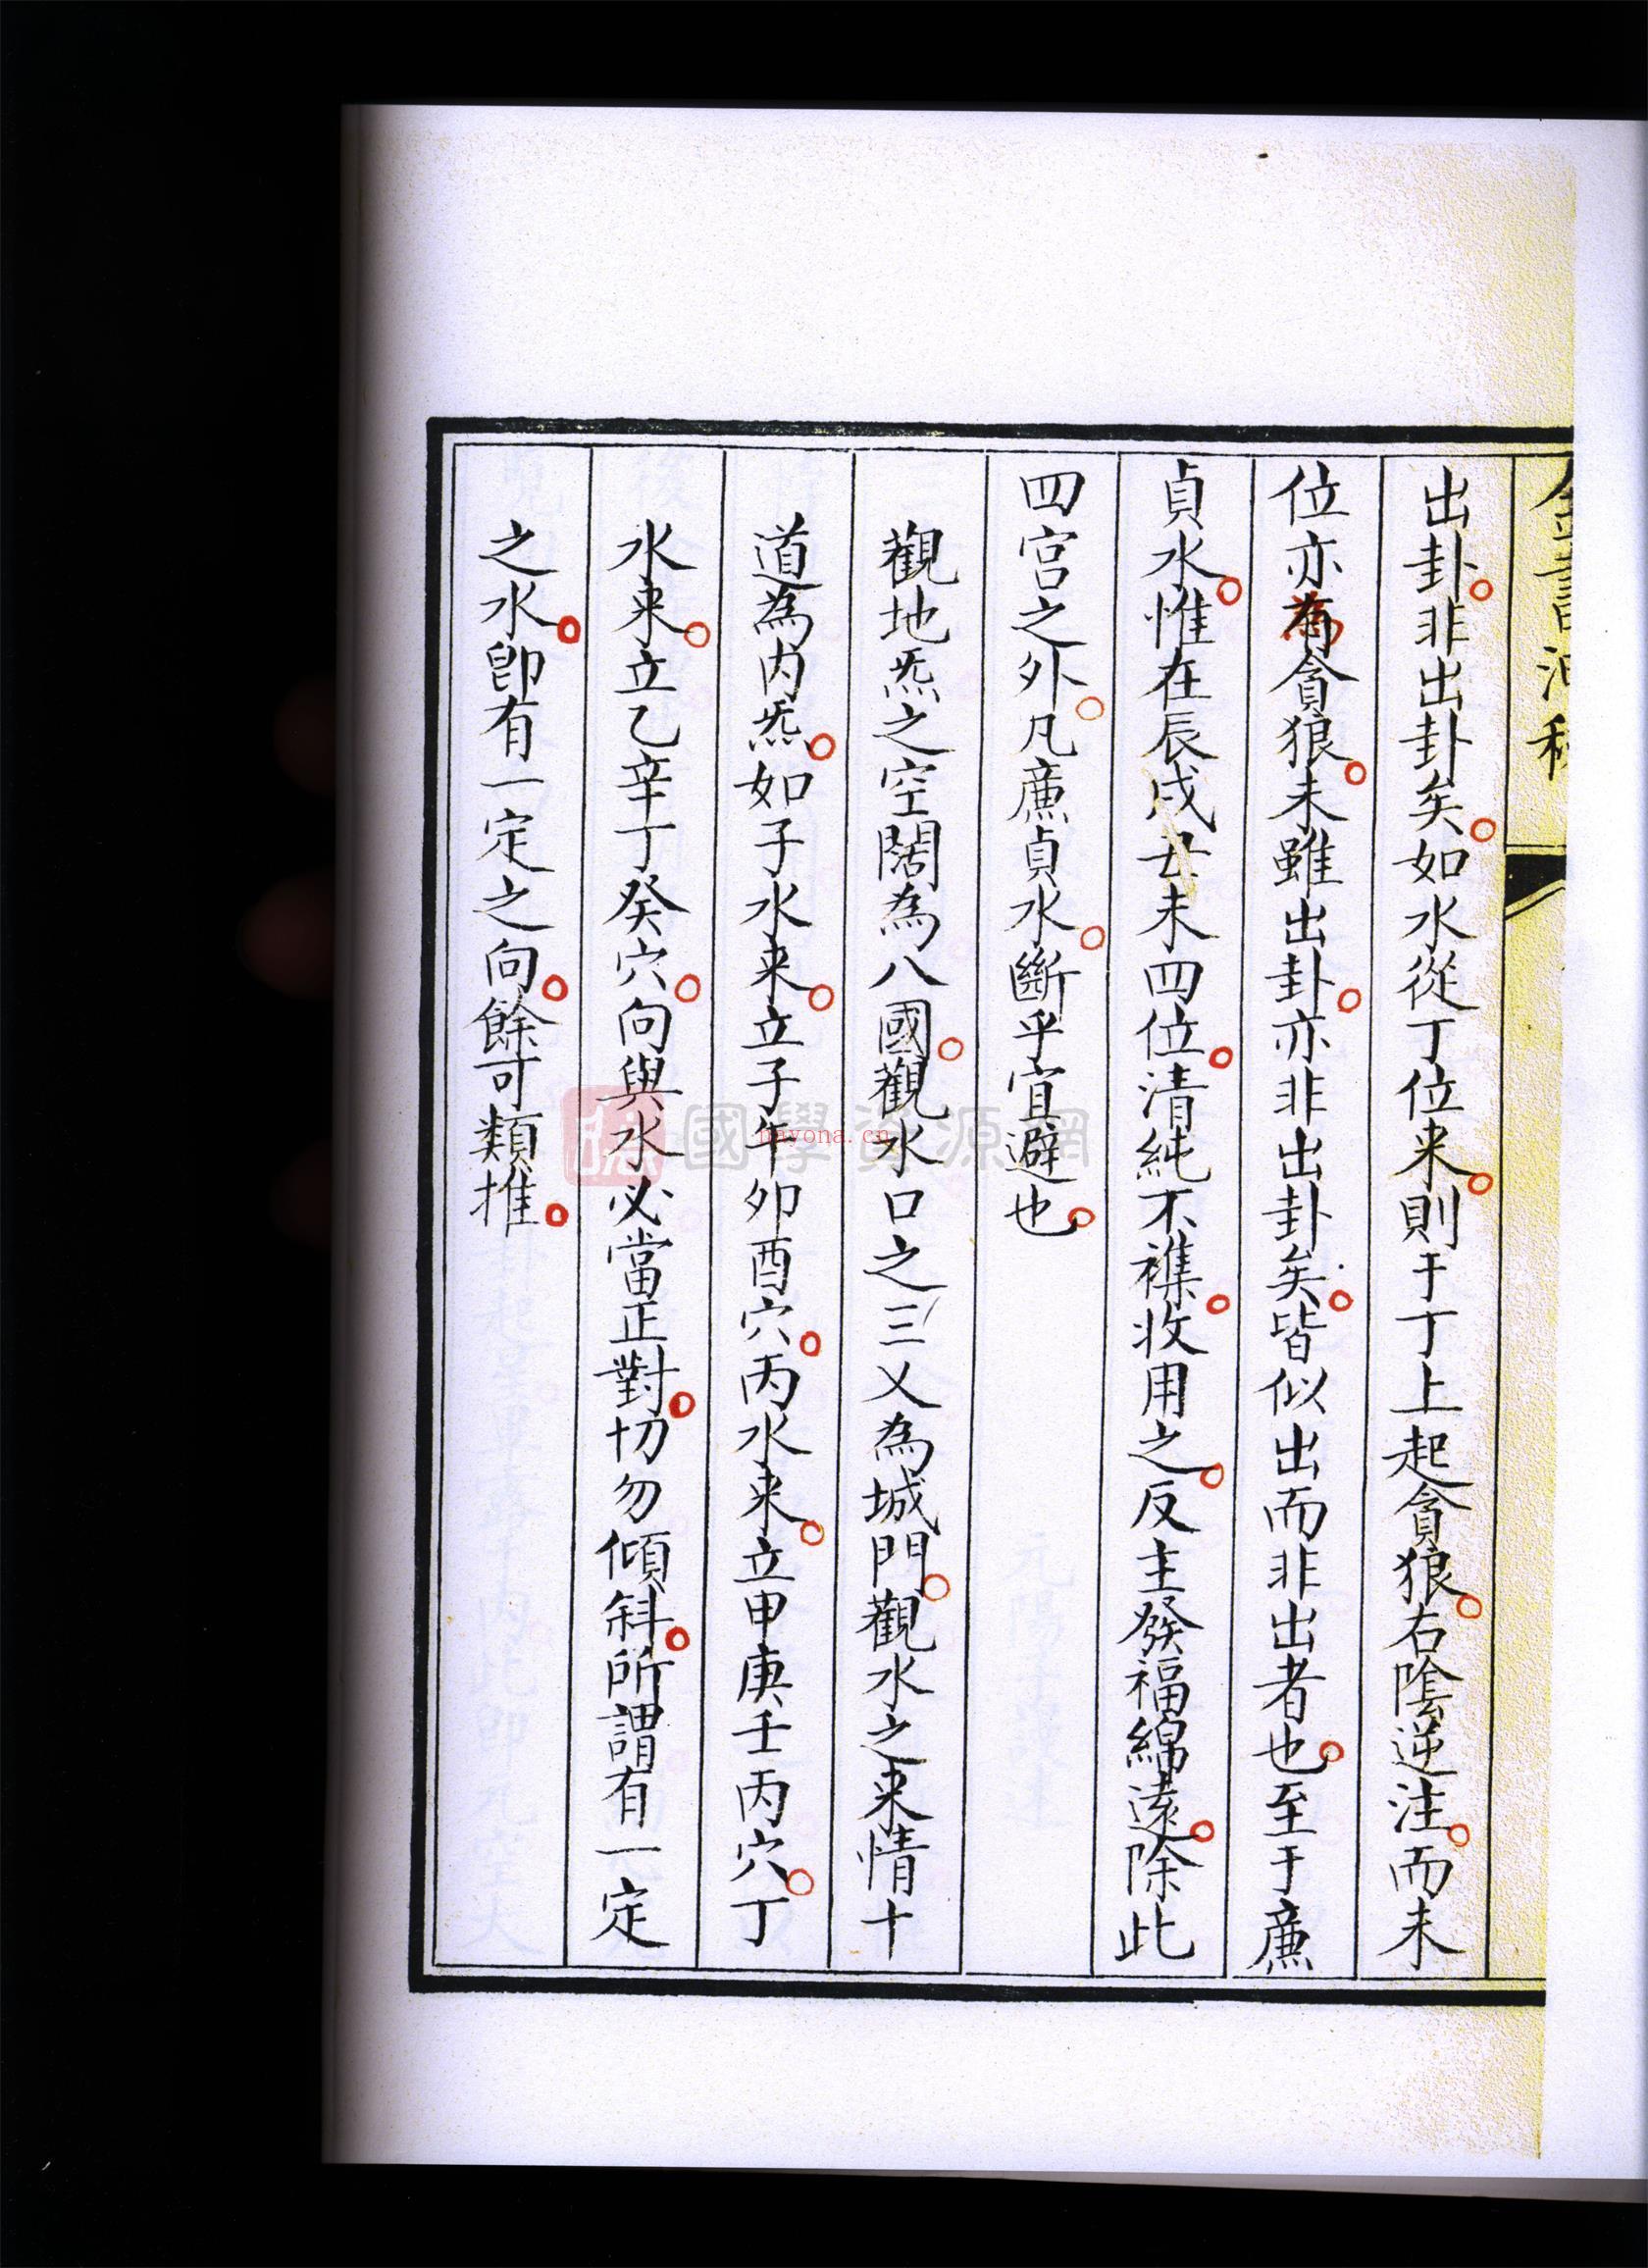 出卦非出卦矣如水從丁位来則于丁上起貪狼右陰逆注而未
位亦為貪狼未雖出卦亦非出卦矣皆似出而非出者也至于廉
貞水惟在辰戌丑未四位清純不襍收用之反主發福綿遠除此
四宮之外凡廉貞水斷乎宜避也
觀地炁之空闊為八國觀水口之三乂為城門觀水之来情十
道為内炁如子水来立子午卯酉穴丙水来立甲庚壬丙穴丁
水来立乙辛丁癸穴向與水必當正對切勿傾斜所謂有一定
之水卽有一定之向餘可類推
國學資源網
nayona.cn